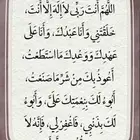 اللَّهُمَّ أَنْتَ رَبِّي لَا إِلَٰهَ إِلَّا أَنْتَ
خَلَقْتَنِي وَأَنَا عَبْدُكَ، وَأَنَا عَلَى
عَهْدِكَ وَوَعْدِكَ مَا اسْتَطَعْتُ،
أَعُوذُ بِكَ مِنْ شَرِّ مَا صَنَعْتُ،
أَبُوءُ لَكَ بِنِعْمَتِكَ عَلَيَّ، وَأَبُوءُ
لَكَ بِذَنْبِي، فَاغْفِرْ لِي، فَإِنَّهُ لَا